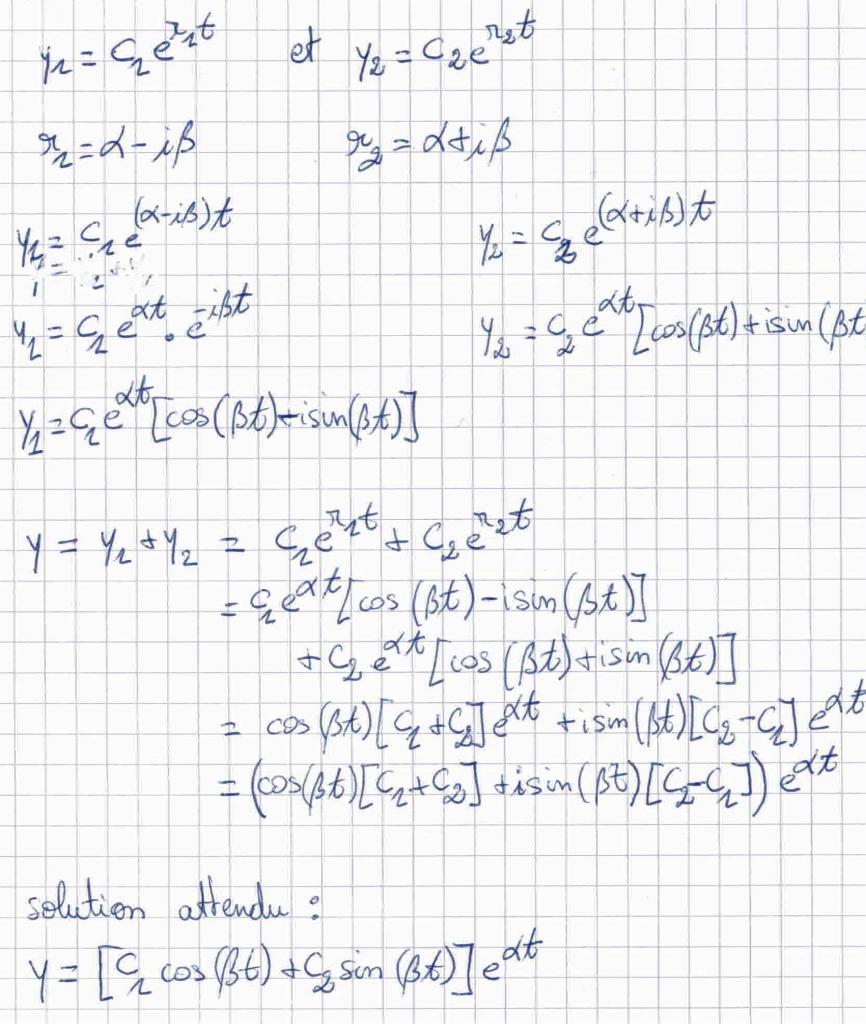 y₁ = C₁e^{r₁t} et y₂ = C₂e^{r₂t}
r₁ = α - iβ r₂ = α + iβ
y₁ = C₁e^{(α-iβ)t} y₂ = C₂e^{(α+iβ)t}
y₁ = C₁e^{αt} . e^{-iβt} y₂ = C₂e^{αt}[cos(βt) + isin(βt
y₁ = C₁e^{αt}[cos(βt) - isin(βt)]
y = y₁ + y₂ = C₁e^{r₁t} + C₂e^{r₂t}
= C₁e^{αt}[cos(βt) - isin(βt)]
+ C₂e^{αt}[cos(βt) + isin(βt)]
= cos(βt)[C₁ + C₂]e^{αt} + isin(βt)[C₂ - C₁]e^{αt}
= (cos(βt)[C₁ + C₂] + isin(βt)[C₂ - C₁])e^{αt}
solution attendu :
y = [C₁ cos(βt) + C₂ sin(βt)]e^{αt}